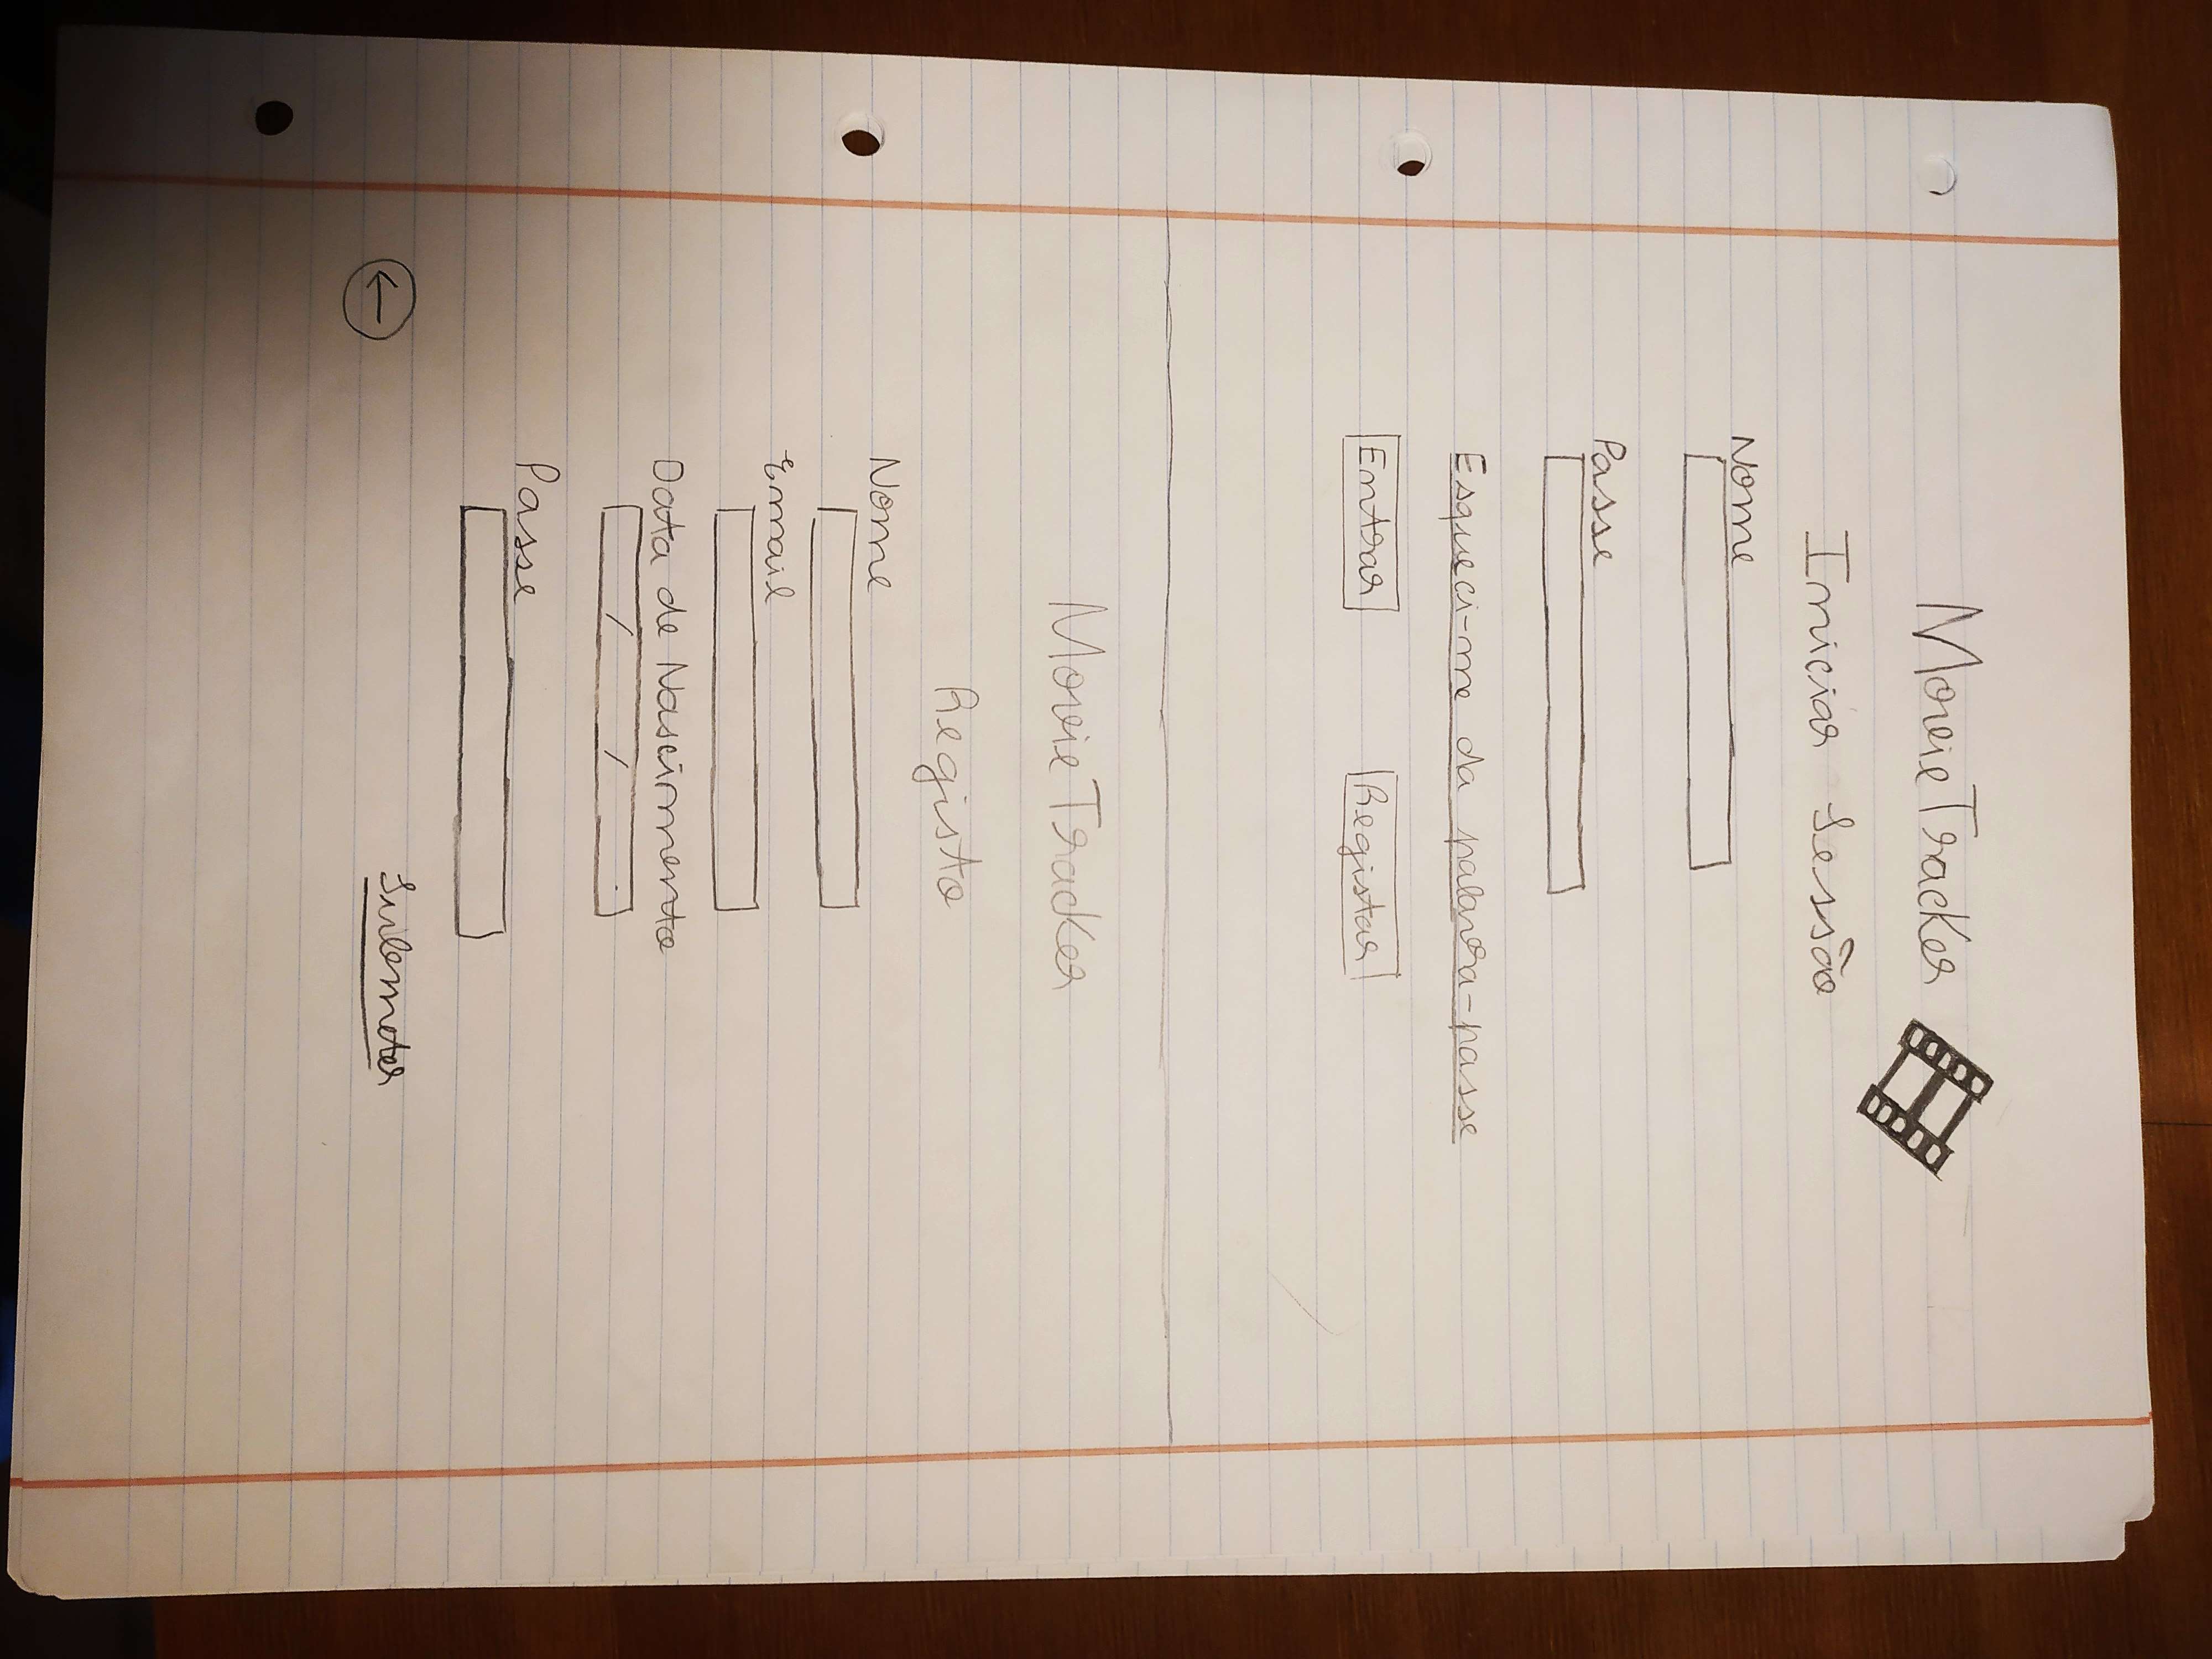 MovieTracker
Iniciar Sessão
Nome
Passe
Esqueci-me da palavra-passe
Entrar Registar
MovieTracker
Registo
Nome
Email
Data de Nascimento
/ /
Passe
←
Submeter